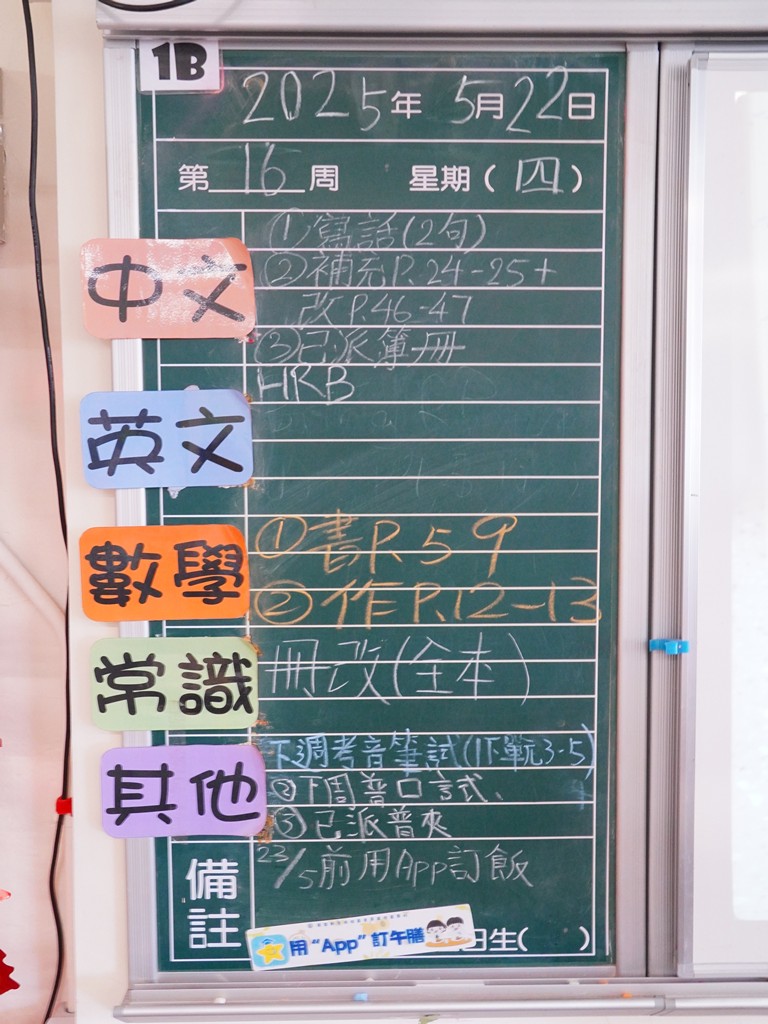 1B
2025年 5月22日
第 16 周 星期(四)
①寫話(2句)
中文
②補充P.24-25+
改P.46-47
③已派簿冊
HRB
英文
①書P.59
數學
②作P.12-13
常識
冊改(全本)
下週考音筆試(1下單元3-5)
其他
②下周普口試、
③已派普夾
備註
23/5前用App訂飯
用“App”訂午膳
日生( )